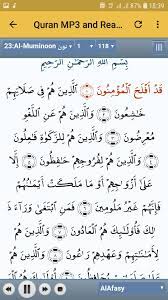 18:39
Quran MP3 and Rea...
23:Al-Muminoon نون 1 118
بِسْمِ اللَّهِ الرَّحْمَٰنِ الرَّحِيمِ
قَدْ أَفْلَحَ الْمُؤْمِنُونَ ﴿١﴾ الَّذِينَ هُمْ فِي صَلَاتِهِمْ
خَاشِعُونَ ﴿٢﴾ وَالَّذِينَ هُمْ عَنِ اللَّغْوِ
مُعْرِضُونَ ﴿٣﴾ وَالَّذِينَ هُمْ لِلزَّكَاةِ
فَاعِلُونَ ﴿٤﴾ وَالَّذِينَ هُمْ لِفُرُوجِهِمْ حَافِظُونَ
﴿٥﴾ إِلَّا عَلَىٰ أَزْوَاجِهِمْ أَوْ مَا مَلَكَتْ أَيْمَانُهُمْ
فَإِنَّهُمْ غَيْرُ مَلُومِينَ ﴿٦﴾ فَمَنِ ابْتَغَىٰ وَرَاءَ
ذَٰلِكَ فَأُولَٰئِكَ هُمُ الْعَادُونَ ﴿٧﴾ وَالَّذِينَ هُمْ
AlAfasy